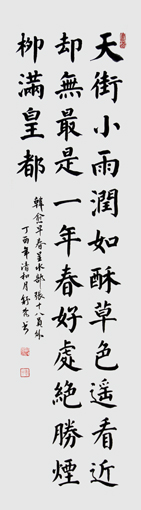 天街小雨潤如酥草色遥看近
却無最是一年春好處絶勝煙
柳滿皇都
韓愈早春呈水部張十八員外
丁酉年清和月舒